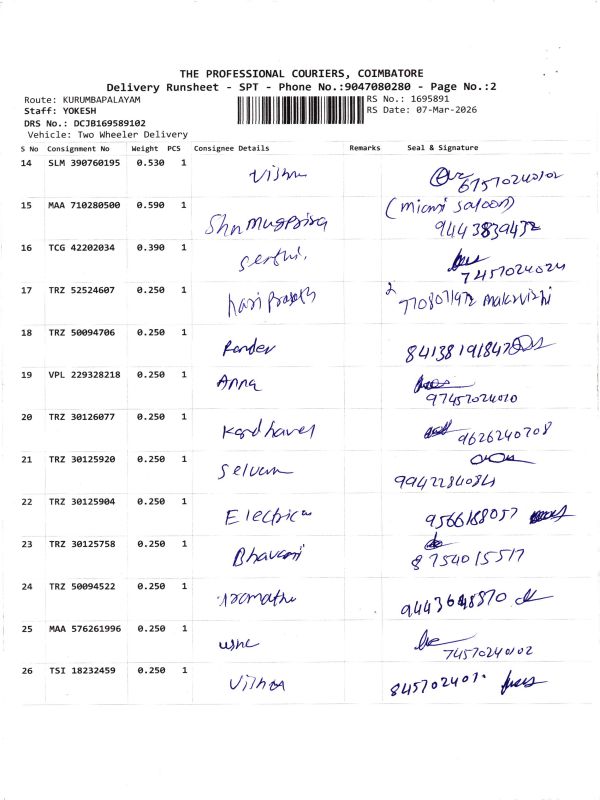 THE PROFESSIONAL COURIERS, COIMBATORE
Delivery Runsheet - SPT - Phone No.:9047080280 - Page No.:2
Route: KURUMBAPALAYAM
Staff: YOKESH
DRS No.: DCJB169589102
Vehicle: Two Wheeler Delivery
RS No.: 1695891
RS Date: 07-Mar-2026
S No Consignment No Weight PCS Consignee Details Remarks Seal & Signature
14 SLM 390760195 0.530 1 Vishnu
15 MAA 710280500 0.590 1 (miami saloon) 9443839432
16 TCG 42202034 0.390 1 7457024024
17 TRZ 52524607 0.250 1 hari prasath
18 TRZ 50094706 0.250 1
19 VPL 229328218 0.250 1 Anna 97457024010
20 TRZ 30126077 0.250 1 9626240708
21 TRZ 30125920 0.250 1 Selvam 9942284084
22 TRZ 30125904 0.250 1 9566168057
23 TRZ 30125758 0.250 1 Bhavani 8754015517
24 TRZ 50094522 0.250 1
25 MAA 576261996 0.250 1 74570240102
26 TSI 18232459 0.250 1